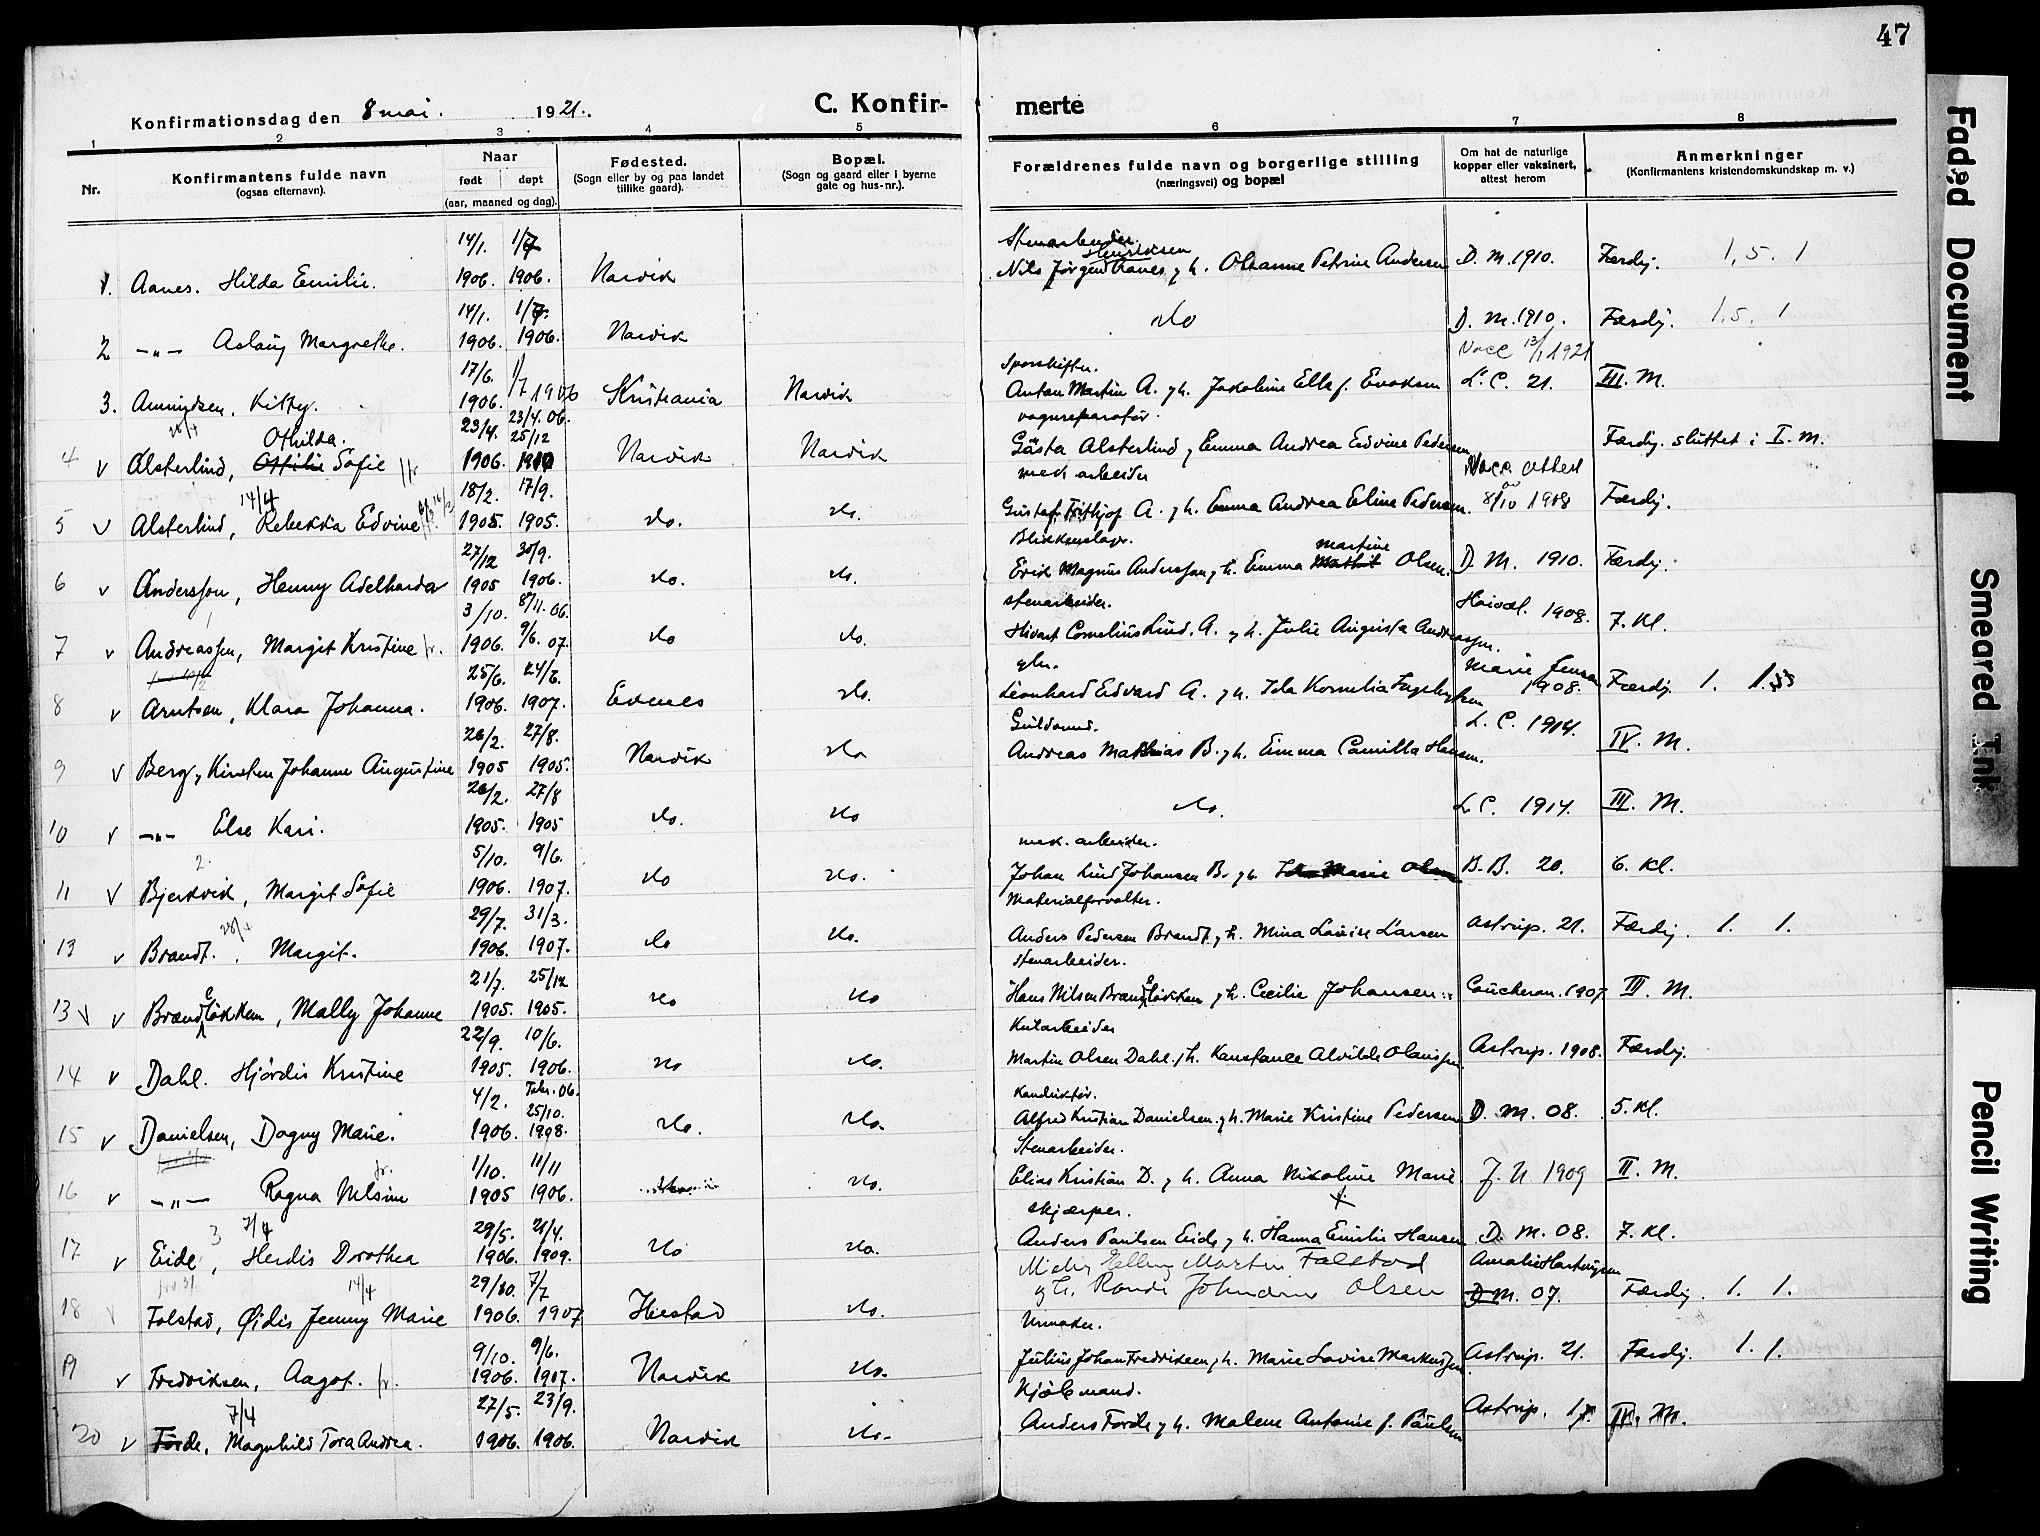 47
Konfirmationsdag den 8 mai. 1921. C. Konfir- merte
1 2 3 4 5 6 7 8
Nr. Konfirmantens fulde navn (ogsaa efternavn). Naar født døpt (aar, maaned og dag). Fødested. (Sogn eller by og paa landet tillike gaard). Bopæl. (Sogn og gaard eller i byerne gate og hus-nr.). Forældrenes fulde navn og borgerlige stilling (næringsvei) og bopæl Om hat de naturlige kopper eller vaksinert, attest herom Anmerkninger (Konfirmantens kristendomskundskap m. v.)
14/1. 1/7 Stenarbeider. Henriksen
1. Aanes. Hilda Emilie. 1906. 1906. Narvik Nils Jørgen Aanes, g h. Olianne Petrine Andersen D. M. 1910. Færdig. 1, 5. 1
14/1. 1/7.
2 —"— Aslaug Margrethe. 1906. 1906. Narvik do D. M. 1910. Færdig. 1,5. 1.
17/6. 1/7 1906 Sporskifter. Vacc 13/1 1921
3. Amundsen, Kitty. 1906. Kristiania Narvik Anton Martin A. g h. Jakobine Ells f. Evaksen L. C. 21. III. M.
28/4 Othilda. 23/4. 23/4. 06. 25/12 vognreparatør.
4 v Alsterlind, Ottilie Sofie fr 1906. Narvik Narvik Gösta Alsterlind, g Emma Andrea Edvine Pedersen Færdig. sluttet i I. M.
14/4 18/2. 17/9. mek arbeider Vacc. attest av
5 v Alsterlind, Rebekka Edvine 1905. 1905. do. do. Gustaf Frithjof A. g h. Emma Andrea Eline Pedersen. 8/10 1908 Færdig.
27/12 30/9. Blikkenslager. Martine
6 v Andersson, Henny Adelharda 1905 1906. do. do. Erik Magnus Andersson, g h. Emma Olsen. D. M. 1910. Færdig.
3/10. 8/11. 06. stenarbeider.
7 v Andreassen, Margit Kristine fr. 1906. 9/6. 07. do do. Sivart Cornelius Lind. A. g h. Julie Augusta Andreassen. 1908. 7. Kl.
25/6. 24/3. gbr. Marie Jensen
8 v Arntsen, Klara Johanna. 1906. 1907. Evenes do. Leonhard Edvard A. g h. Ida Kornelia Ingebrigtsen 1908. Færdig. 1. 1.
26/2. 27/8. Guldsmed.
9 v Berg, Kirsten Johanne Augustine 1905 1905. Narvik do Andreas Mathias B. g h. Emma Camilla Hansen. L. C. 1914. IV. M.
26/2. 27/8
10 v —"— Else Kari. 1905. 1905 do. do do. L C. 1914. III. M.
2. 5/10. 9/6. mek. arbeider.
11 v Bjerkvik, Margit Sofie 1906. 1907. do do. Johan Lind Johansen B. g h. Ida Marie Olsen B. B. 20. 6. Kl.
28/4 29/7. 31/3. Materialforvalter.
13 v Brandt. Margit. 1906. 1907. do do. Anders Pedersen Brandt, g h. Mina Lovise Larsen Astrup. 21. Færdig. 1. 1.
21/7. 25/12 stenarbeider.
13 v v Brændeløkken, Mally Johanne 1905. 1905. do do Hans Nilsen Brændeløkken g h. Cecilie Johansen Coucheron. 1907 III. M.
22/9. 10/6. Kularbeider
14 v Dahl. Hjördis Kristine 1905. 1906. do do. Martin Olsen Dahl. g h. Konstance Alvilde Olaussen. Astrup. 1908. Færdig.
4/2. Febr. 06. 25/10. Konduktør.
15 v Danielsen, Dagny Marie. 1906. 1908. do. do. Alfred Kristian Danielsen. g h. Marie Kristine Pedersen D. M. 08. 5. Kl.
fr. 1/10. 11/11 Stenarbeider.
16 v —"— Ragna Nilsine 1905 1906. do. Elias Kristian D. g h. Anna Nikoline Marie J. N 1909 II. M.
3 7/4 29/5. 21/4. skjærper.
17 v Eide, Herdis Dorothea 1906. 1909. do do. Anders Paulsen Eide g h. Hanna Emilie Hansen D. M. 08. 7. Kl.
14/4 29/10. 7/7 Elling Martin Falstad
18 v Falstad, Øidis Jenny Marie 1906. 1907 do. g h. Johan Olsen M. 07. Færdig. 1. 1.
9/10. 9/6. Urmaker.
19 v Fredriksen, Aagot. fr. 1906. 1907. Narvik do. Julius Johan Fredriksen, g h. Marie Lovise Markussen. Astrup. 21. Færdig. 1. 1.
7/4 27/5. 23/9. Kjølemand.
20 v Forde, Magnhild Tora Andrea. 1906. 1906. Narvik do. Anders Forde, g h. Malene Antonie f. Paulsen Astrup. IV. M.
Faded Document
Smeared Ink
Pencil Writing